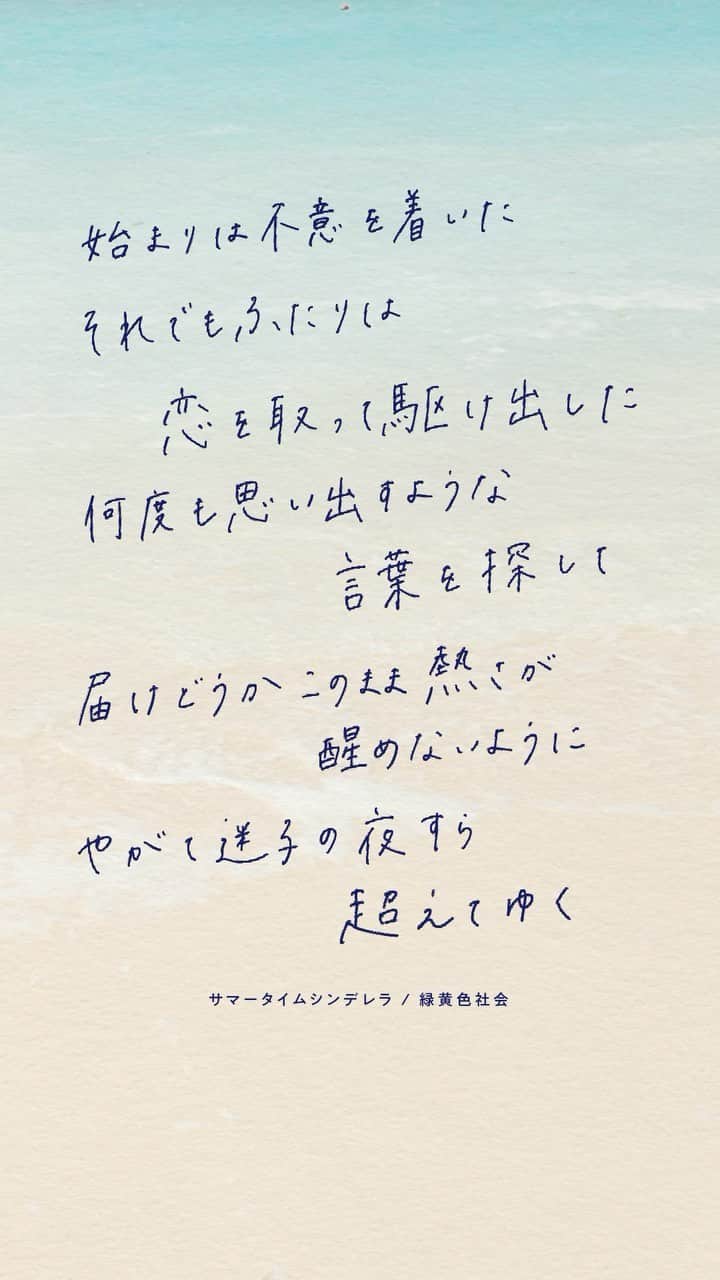 始まりは不意を着いた
それでもふたりは
恋を取って駆け出した
何度も思い出すような
言葉を探して
届けどうか このまま熱さが
醒めないように
やがて迷子の夜すら
超えてゆく
サマータイムシンデレラ / 緑黄色社会